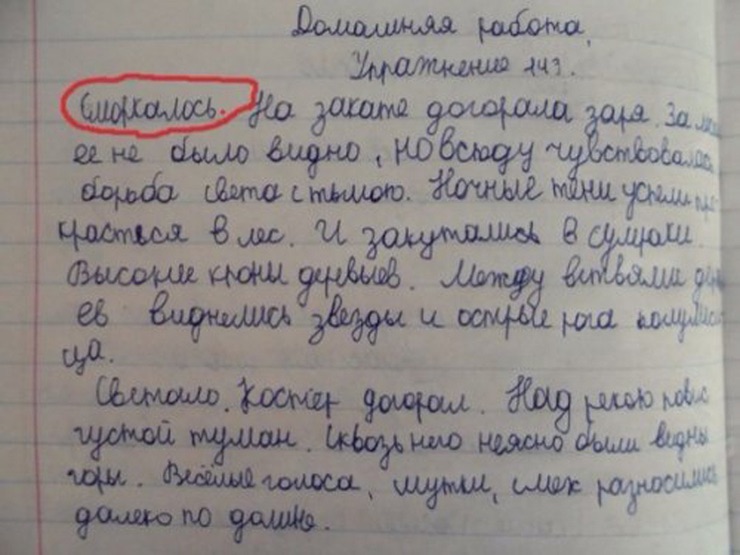 Домашняя работа.
Упражнение 143.
Сморкалось. На закате догорала заря. За
ее не было видно, но всюду чувствовалась
борьба света с тьмою. Ночные тени успели про
красться в лес. И закутались в сумраки.
Высокие кроны деревьев. Между ветвями дерев
ев виднелись звезды и острые рога полумеся
ца.
Светало. Костер догорал. Над рекою повис
густой туман. Сквозь него неясно были видны
горы. Весёлые голоса, шутки, смех разносились
далеко по долине.